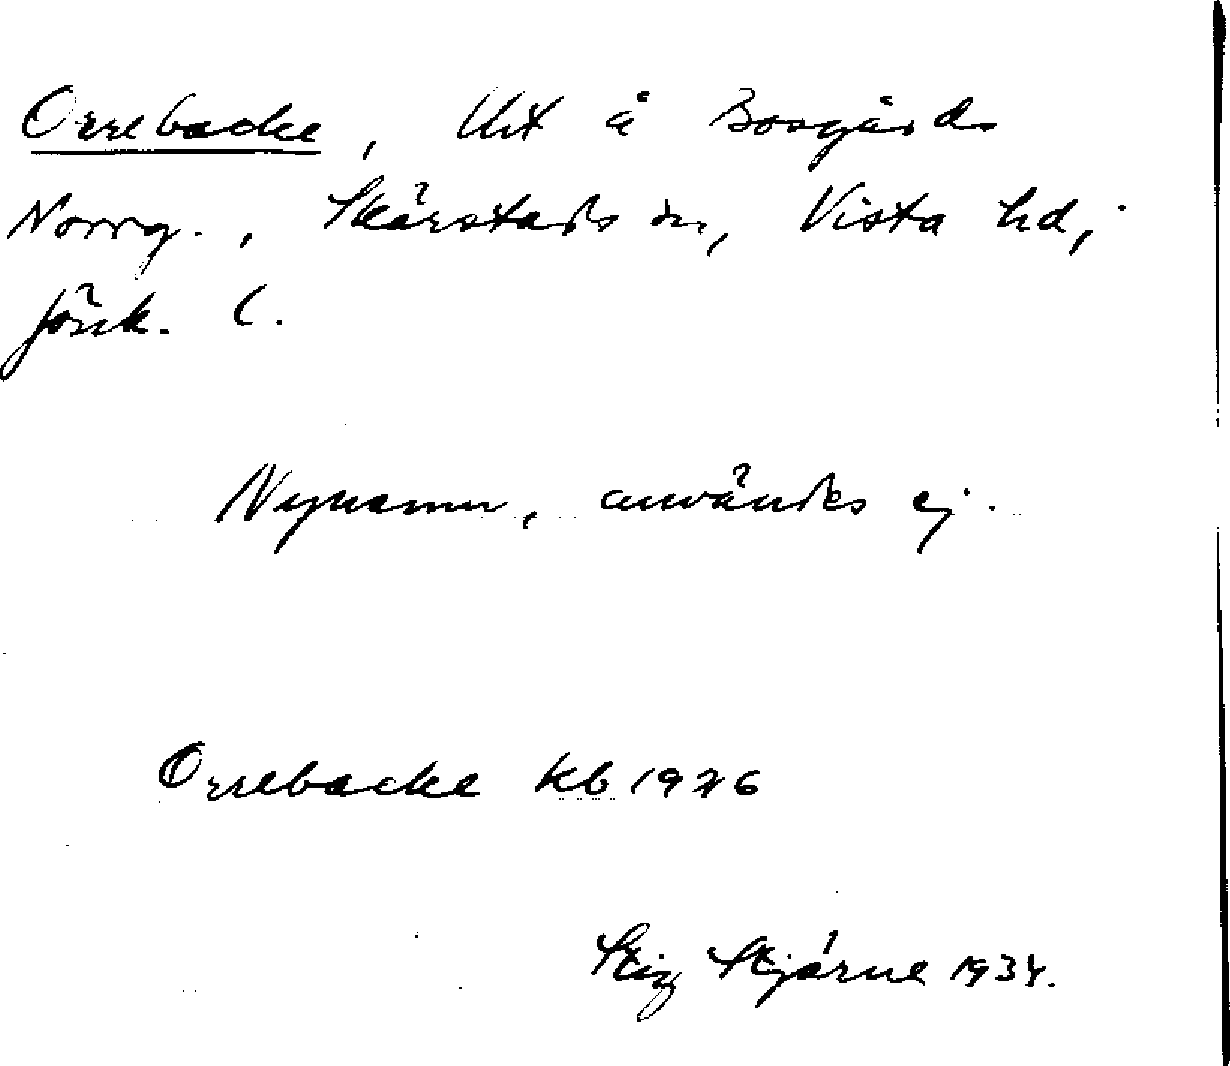 Orrebacke, Urt å Bosgårds
Norrg., Skärstads sn, Vista hd,
Jönk. l.
Nynamn, användes ej.
Orrebacke kb 1926
Stig Stjärne 1934.